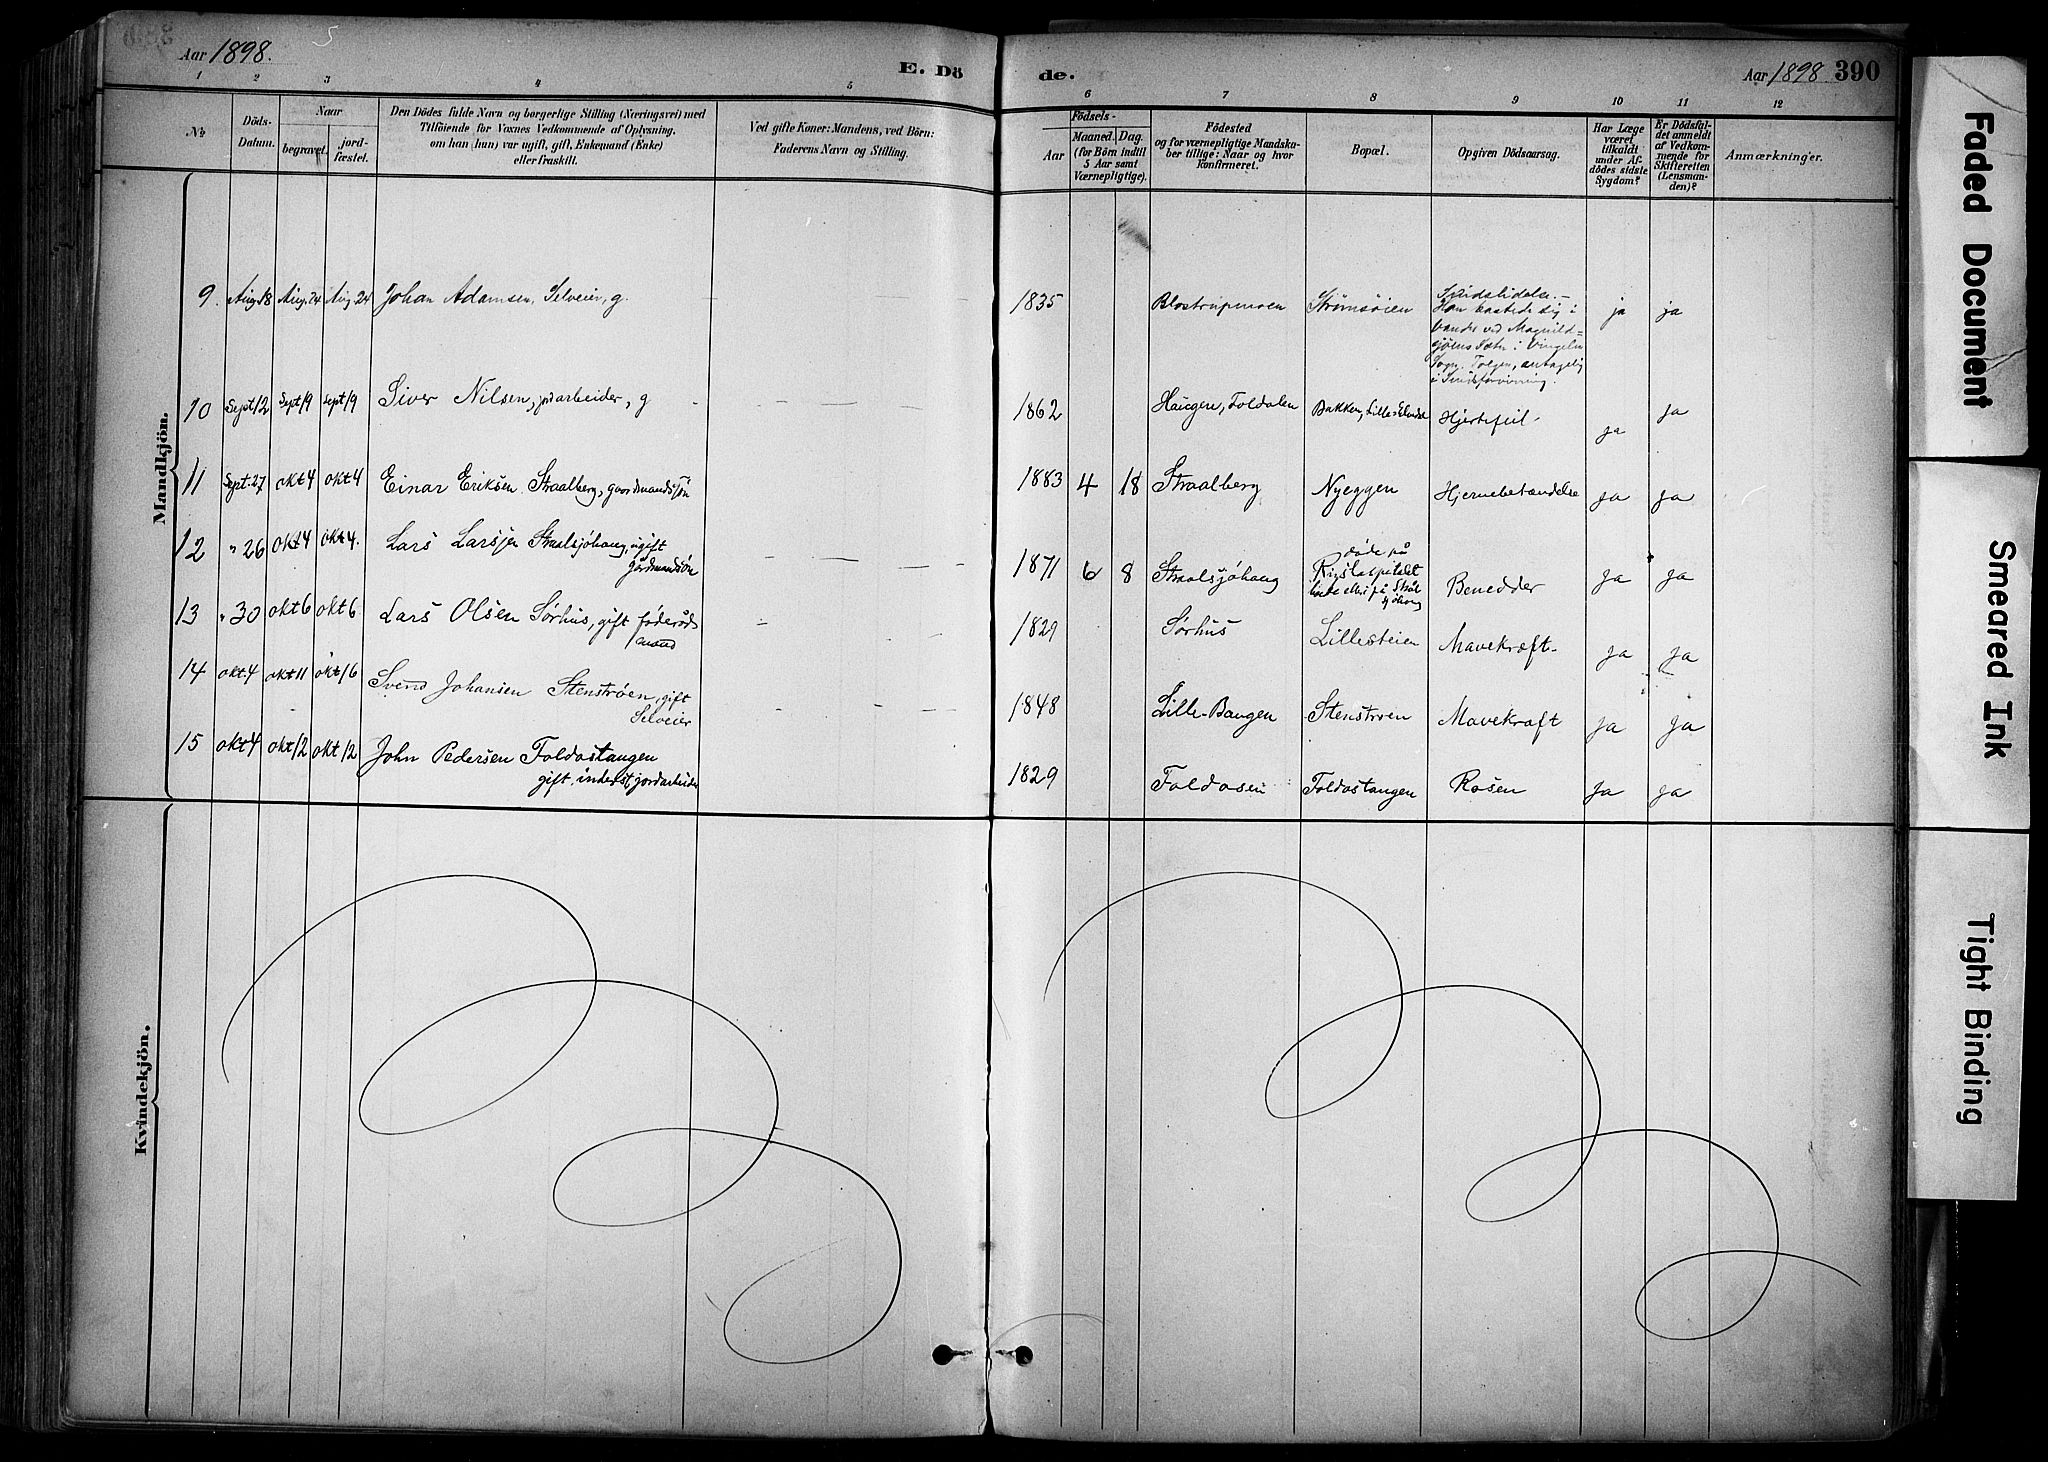 Aar 1898.
E. Dö
de.
Aar 1898 390
1 2 3 4 5
6 7 8 9 10 11 12
No
Döds-
Datum.
Naar
begravet.
jord-
fæstet.
Den Dödes fulde Navn og borgerlige Stilling (Næringsvei) med
Tilföiende for Voxnes Vedkommende af Oplysning,
om han (hun) var ugift, gift, Enkemand (Enke)
eller fraskilt.
Ved gifte Koner: Mandens, ved Börn:
Faderens Navn og Stilling.
Födsels-
Aar
Maaned. Dag.
(for Börn indtil
5 Aar samt
Værnepligtige).
Födested
og for værnepligtige Mandska-
ber tillige: Naar og hvor
konfirmeret.
Bopæl.
Opgiven Dödsaarsag.
Har Læge
været
tilkaldt
under Af-
dödes sidste
Sygdom?
Er Dödsfal-
det anmeldt
af Vedkom-
mende for
Skifteretten
(Lensman-
den)?
Anmærkninger.
Mandkjön.
9. Aug. 18 Aug. 24 Aug 24 Johan Adamsen, Selveier, g. 1835 Blostrupmoen Strømsøien Sindslidelse. – ja ja
Han kastede sig i
Vandet ved Magnild=
sjøens Sæter i Vingelen
Sogn, Tolgen, antagelig
i Sindsforvirring.
10 Sept 12 Sept 19 Sept 19 Siver Nilsen, jordarbeider, g 1862 Haugen, Foldalen Bakken, Lille- Hjertefeil. ja ja
11 Sept. 27 okt 4 okt 4 Einar Eriksen Straalberg, gaardmandssøn 1883 4 18 Straalberg Nyeggen Hjernebetændelse ja ja
12 " 26 okt 4 okt 4. Lars Larsen Straalsjøhaug, ugift
gårdmandssøn 1871 6 8 Straalsjøhaug døde på
Rigshospitalet
boede ellers på Strål
sjøhaug Benedder ja ja
13 " 30 okt 6 okt 6 Lars Olsen Sørhus, gift føderåds
mand 1829 Sørhus Lillesteien Mavekræft. ja ja
14 okt. 4 okt 11 okt 16 Svend Johansen Stenstrøen, gift
Selveier 1848 Lille-Baugen Stenstrøen Mavekræft ja ja
15 okt 4 okt 12 okt 12 John Pedersen Foldostangen
gift. inderst, jordarbeider 1829 Foldosen Foldostangen Rosen ja ja
Kvindekjön.
Faded Document
Smeared Ink
Tight Binding